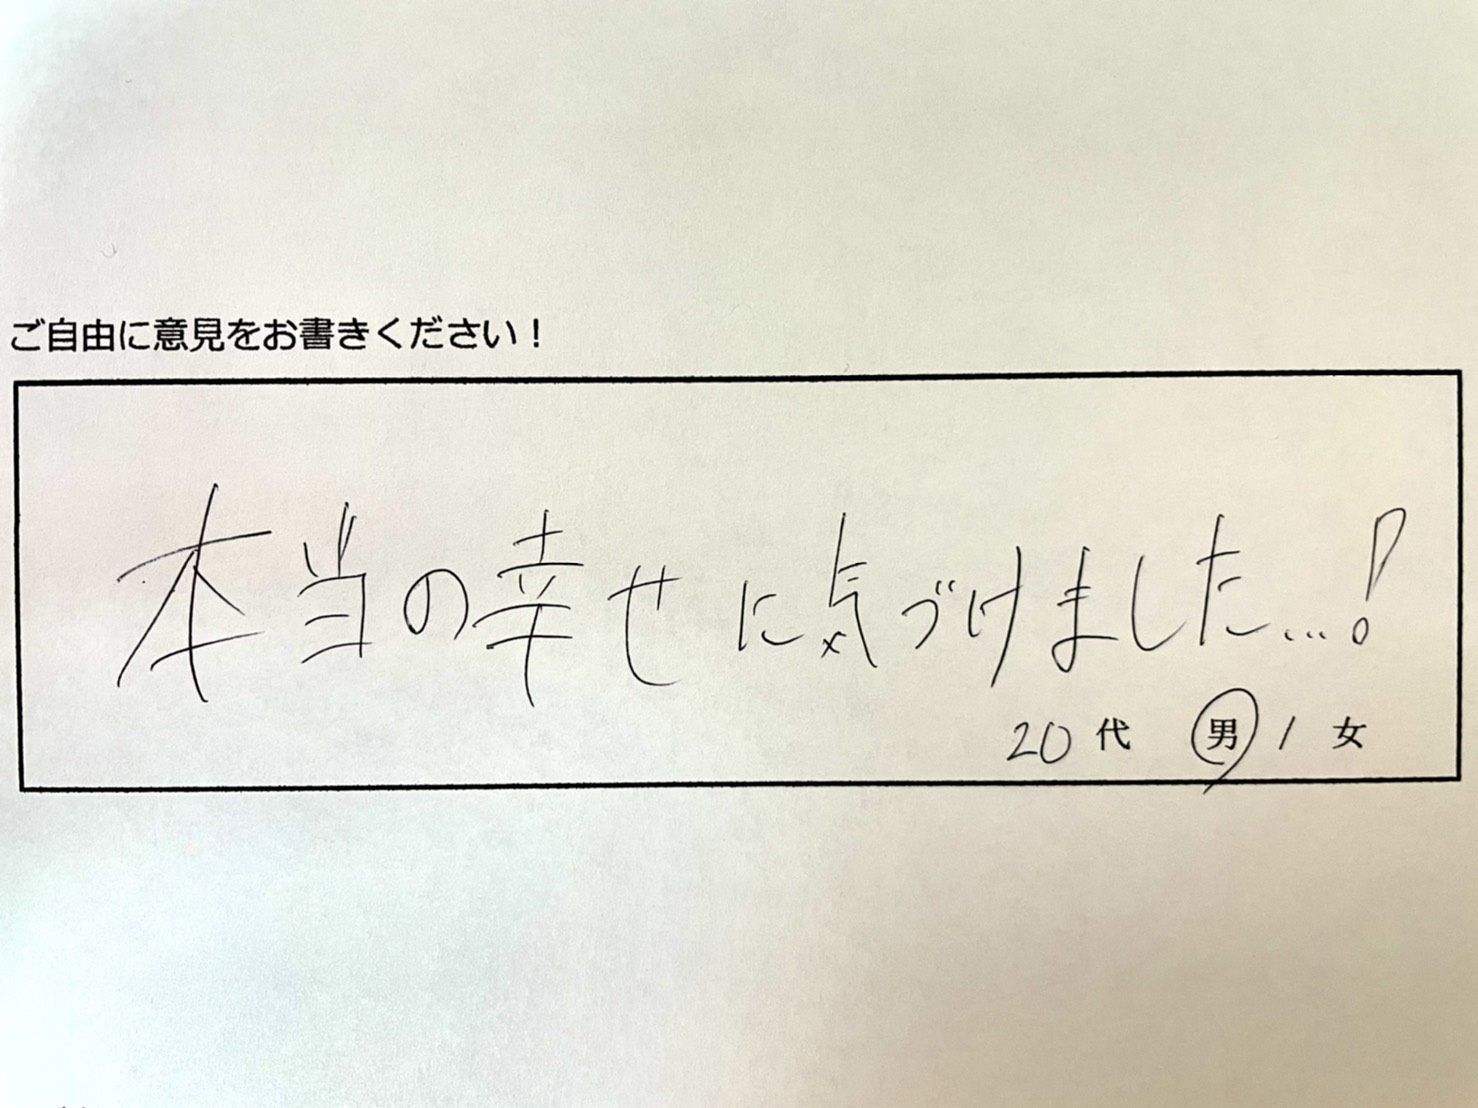 ご自由に意見をお書きください！
本当の幸せに気づけました...!
20代 男 / 女